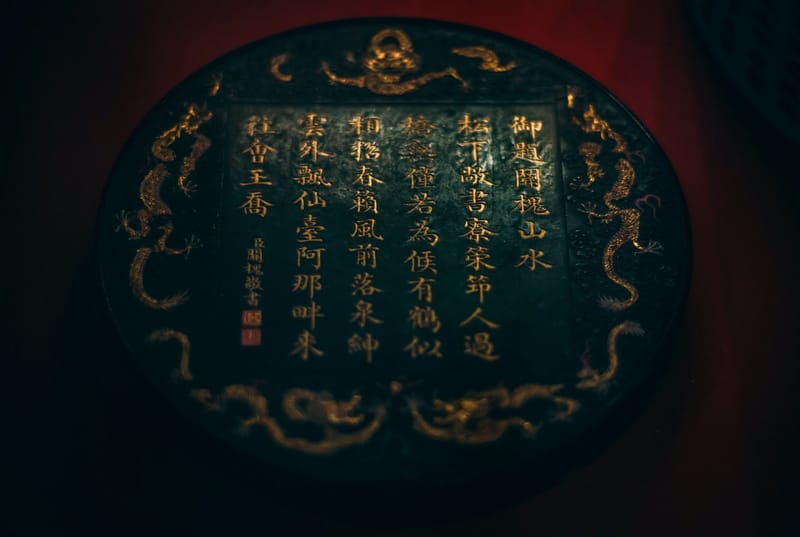 御題關槐山水
松下敞書寮策筇人過
橋經僮若為候有鶴似
相招春籟風前落泉紳
雲外飄仙臺阿那畔來
往會王喬
臣關槐敬書